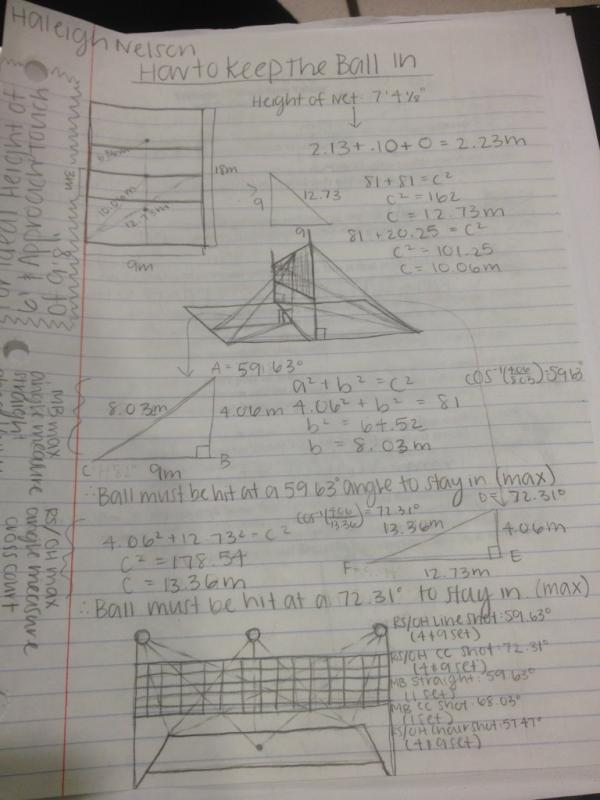 Haleigh Nelson
How to Keep the Ball In
Height of Net: 7' 4 1/8"
2.13 + .10 + 0 = 2.23m
18m
3m
10.06m
12.73m
9m
9
12.73
9
81 + 81 = c²
c² = 162
c = 12.73m
81 + 20.25 = c²
c² = 101.25
c = 10.06m
Ideal Height of
6' & Approach Touch
A = 59.63°
8.03m
4.06m
C
9m
B
a² + b² = c²
4.06² + b² = 81
b² = 64.52
b = 8.03m
cos⁻¹(4.06/8.03) = 59.63
MB max
angle measure
straight
∴ Ball must be hit at a 59.63° angle to stay in (max)
D = 72.31°
4.06² + 12.73² = c²
c² = 178.54
c = 13.36m
cos⁻¹(4.06/13.36) = 72.31°
13.36m
4.06m
F
E
12.73m
RS/OH max
angle measure
cross court
∴ Ball must be hit at a 72.31° to stay in (max)
RS/OH Line shot: 59.63°
(4+9 set)
RS/OH CC shot: 72.31°
(4+9 set)
MB straight: 59.63°
(1 set)
MB CC shot: 68.03°
(1 set)
(4+9 set)